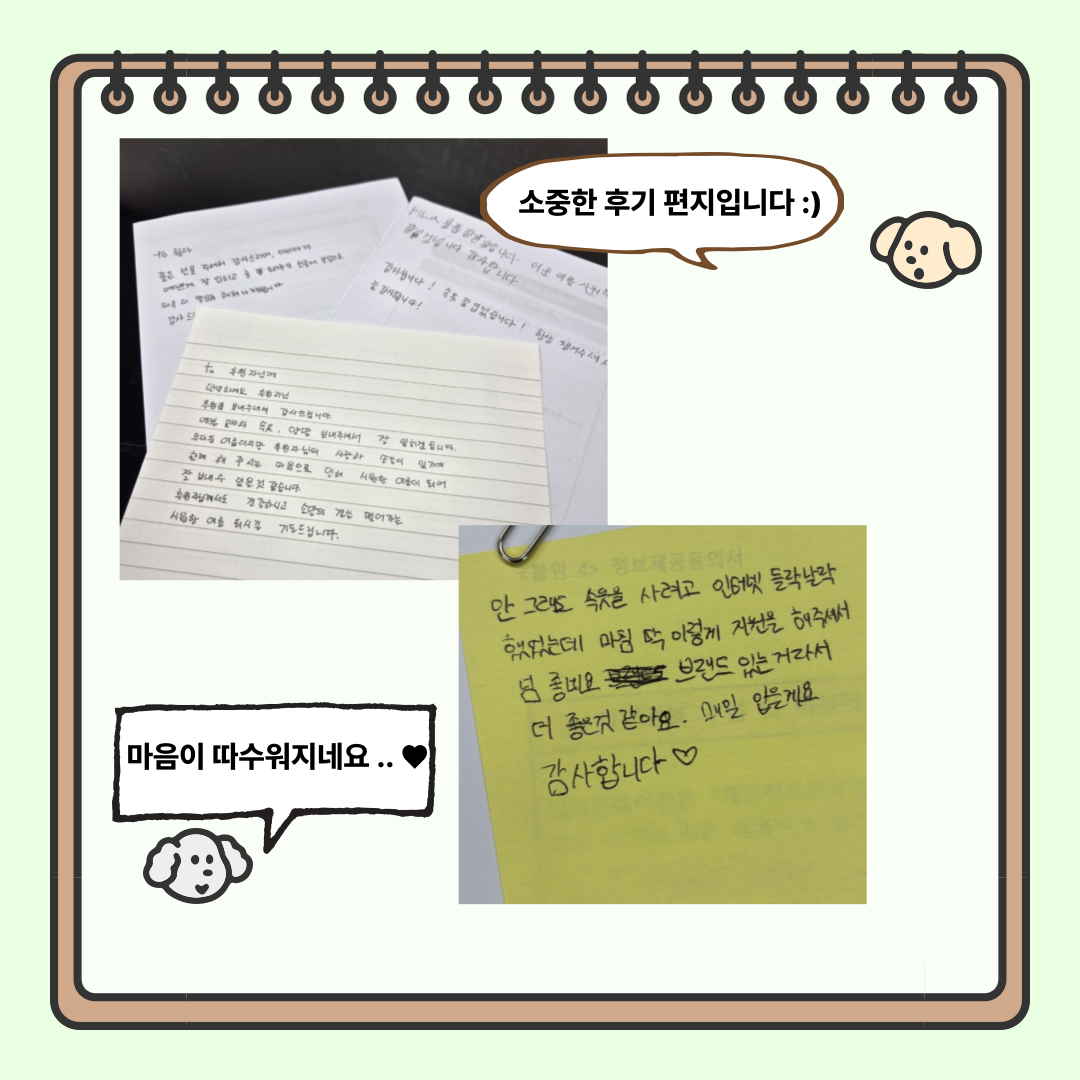 소중한 후기 편지입니다 :)
to 휠라
좋은 선물 주셔서 감사드리며,
예쁘게 잘 입히고
감사드
FILA 물품 잘 받았습니다. 더운 여름 시원하
감사합니다
감사합니다! 속옷 잘 입겠습니다! 항상
to 후원자님께
안녕하세요 후원자님
후원품 보내주셔서 감사드립니다.
예쁜 모자와 속옷, 양말 보내주셔서 잘 입히겠습니다.
무더운 여름이지만 후원자님의 사랑과 손길이 있기에
함께 해 주시는 마음으로 인해 시원한 여름이 되어
잘 보내수 있은것 같습니다.
후원자님께서도 건강하시고 소망의 결실 맺어가는
시원한 여름 되시길 기도드립니다.
<붙임 4> 정보제공동의서
안 그래도 속옷을 사려고 인터넷 들락날락
했었는데 마침 딱 이렇게 지원을 해주셔서
넘 좋네요 브랜드 있는거라서
더 좋은것 같아요. 매일 입을게요
감사합니다 ♡
마음이 따수워지네요 .. ♥